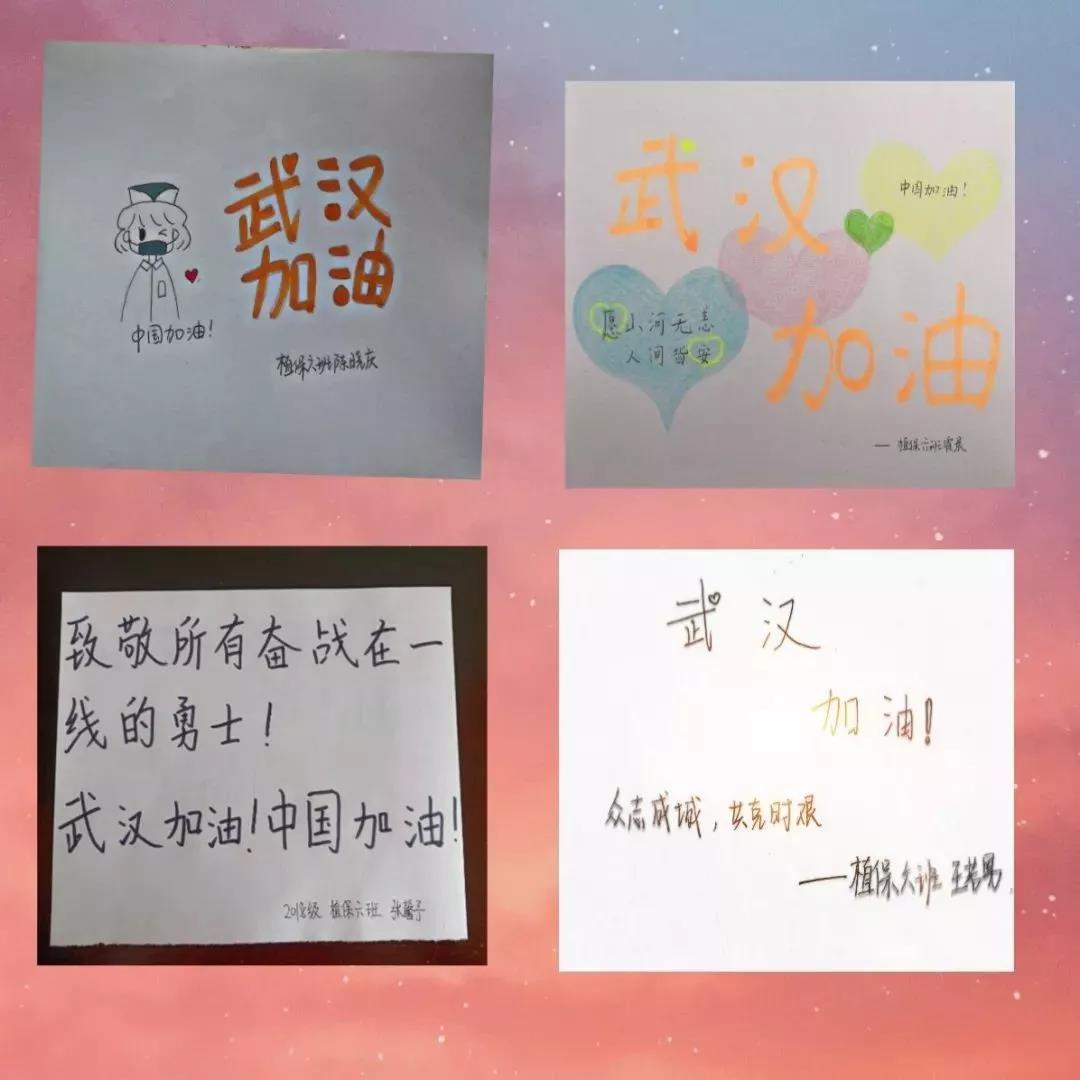 武汉
加油
中国加油!
植保六班陈晓庆
武汉
中国加油!
愿山河无恙
人间皆安
加油
—植保六班
致敬所有奋战在一
线的勇士!
武汉加油!中国加油!
2018级 植保六班 张馨子
武汉
加油!
众志成城,共克时艰
——植保六班 王若男